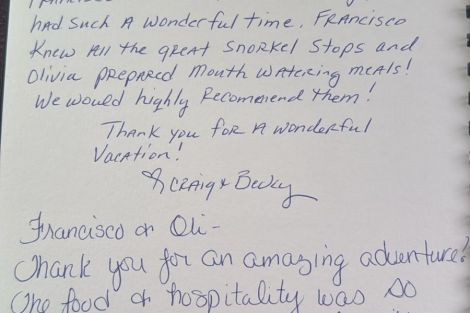 had such a wonderful time. Francisco
knew all the great snorkel stops and
Olivia prepared mouth watering meals!
We would highly recommend them!
Thank you for a wonderful
vacation!
Craig & Becky
Francisco & Oli-
Thank you for an amazing adventure!
The food & hospitality was so